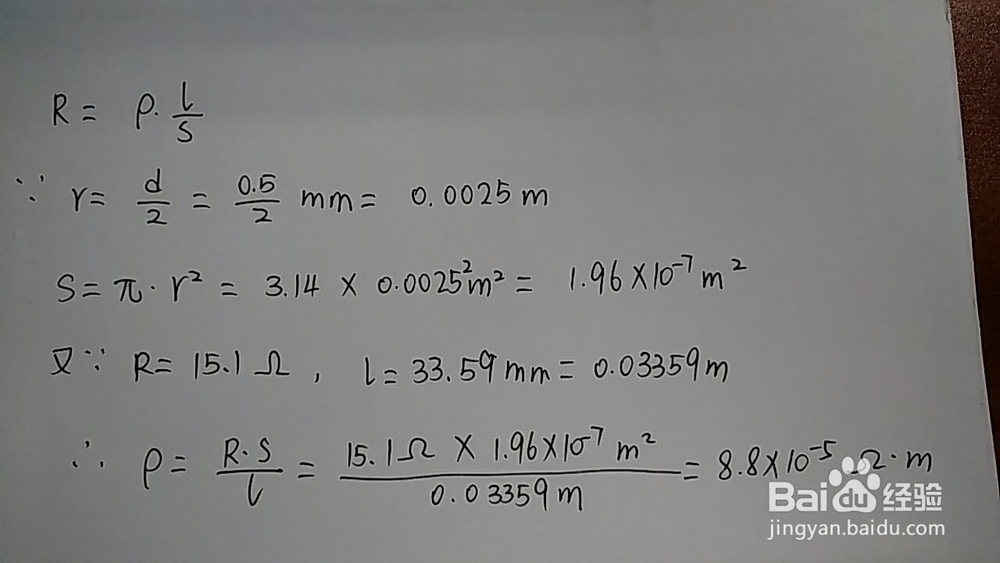 R = ρ · l/S
∵ r = d/2 = 0.5/2 mm = 0.0025 m
S = π · r² = 3.14 × 0.0025² m² = 1.96 × 10⁻⁷ m²
又∵ R = 15.1 Ω , l = 33.59 mm = 0.03359 m
∴ ρ = R·S/l = 15.1Ω × 1.96×10⁻⁷ m²/0.03359 m = 8.8×10⁻⁵ Ω·m
Baidu经验
jingyan.baidu.com